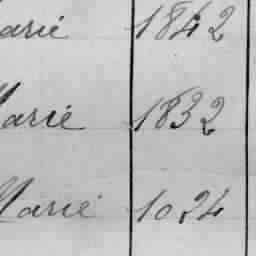 arié 1842
Marié 1832
Marié 1024